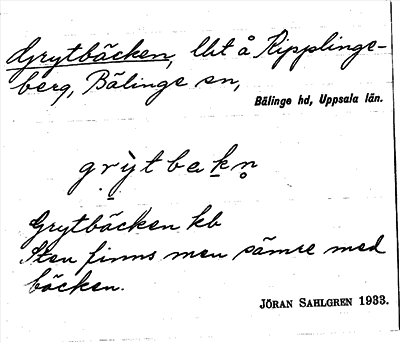 Grytbäcken, lht å Kipplinge-
berg, Bälinge sn,
Bälinge hd, Uppsala län.
gr̤ỳtbakn̥
Grytbäcken kb
Sten finns men sämre med
bäcken.
JÖRAN SAHLGREN 1933.